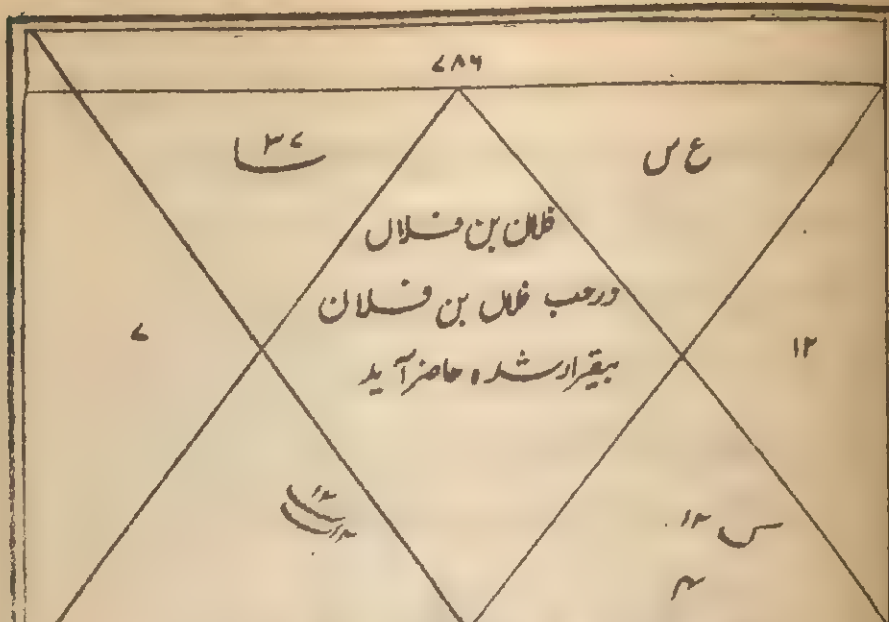 ۷۸۶
ع س
۳۷
فلاں بن فلاں
درحب فلاں بن فلان
بیقرار شدہ حاضر آید
۱۲
۷
س ۱۲
۱۲
۱۲